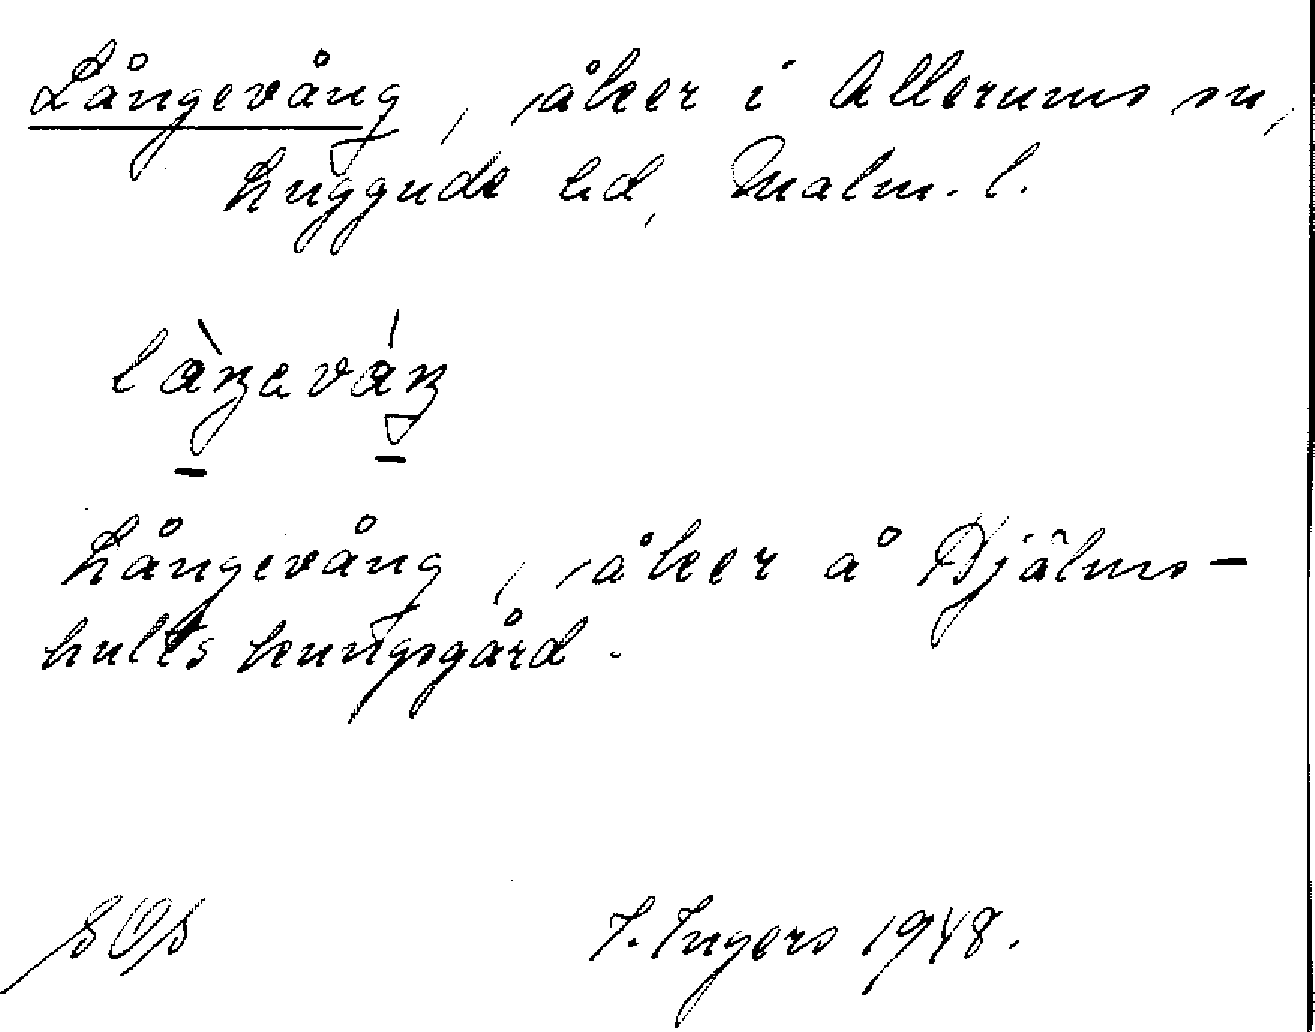 Långevång, åker i Allerums sn,
Luggude hd, Malm. l.
làŋeváŋ
Långevång, åker å Djälms-
hults kungsgård.
SOS I. Ingers 1948.